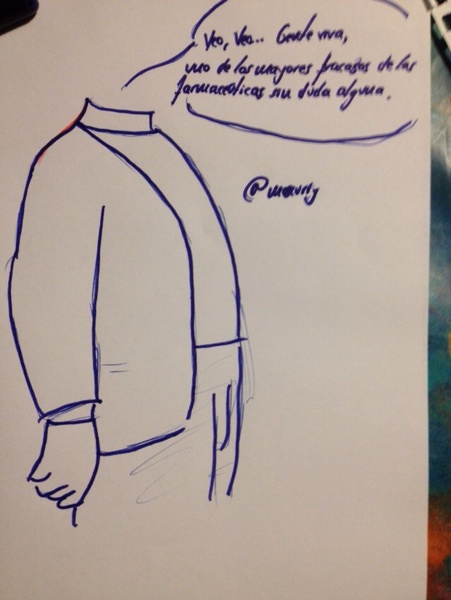 Veo, Veo... Gente viva,
uno de los mayores fracasos de las
farmaceúticas sin duda alguna.